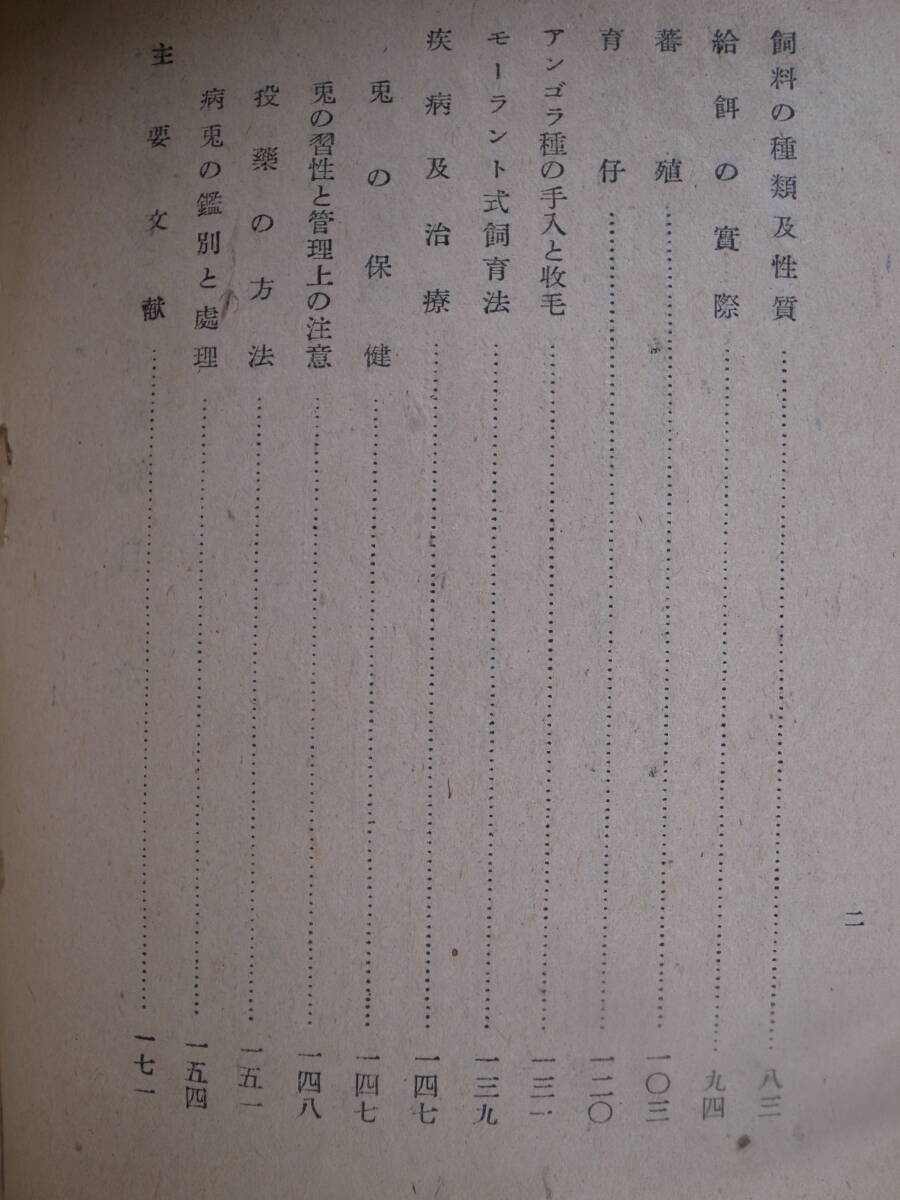 飼料の種類及性質……八三
給餌の實際……九四
蕃殖……一〇三
育仔……一二〇
アンゴラ種の手入と收毛……一三一
モーラント式飼育法……一三九
疾病及治療……一四七
兎の保健……一四七
兎の習性と管理上の注意……一四八
投藥の方法……一五一
病兎の鑑別と處理……一五四
主要文献……一七一
二